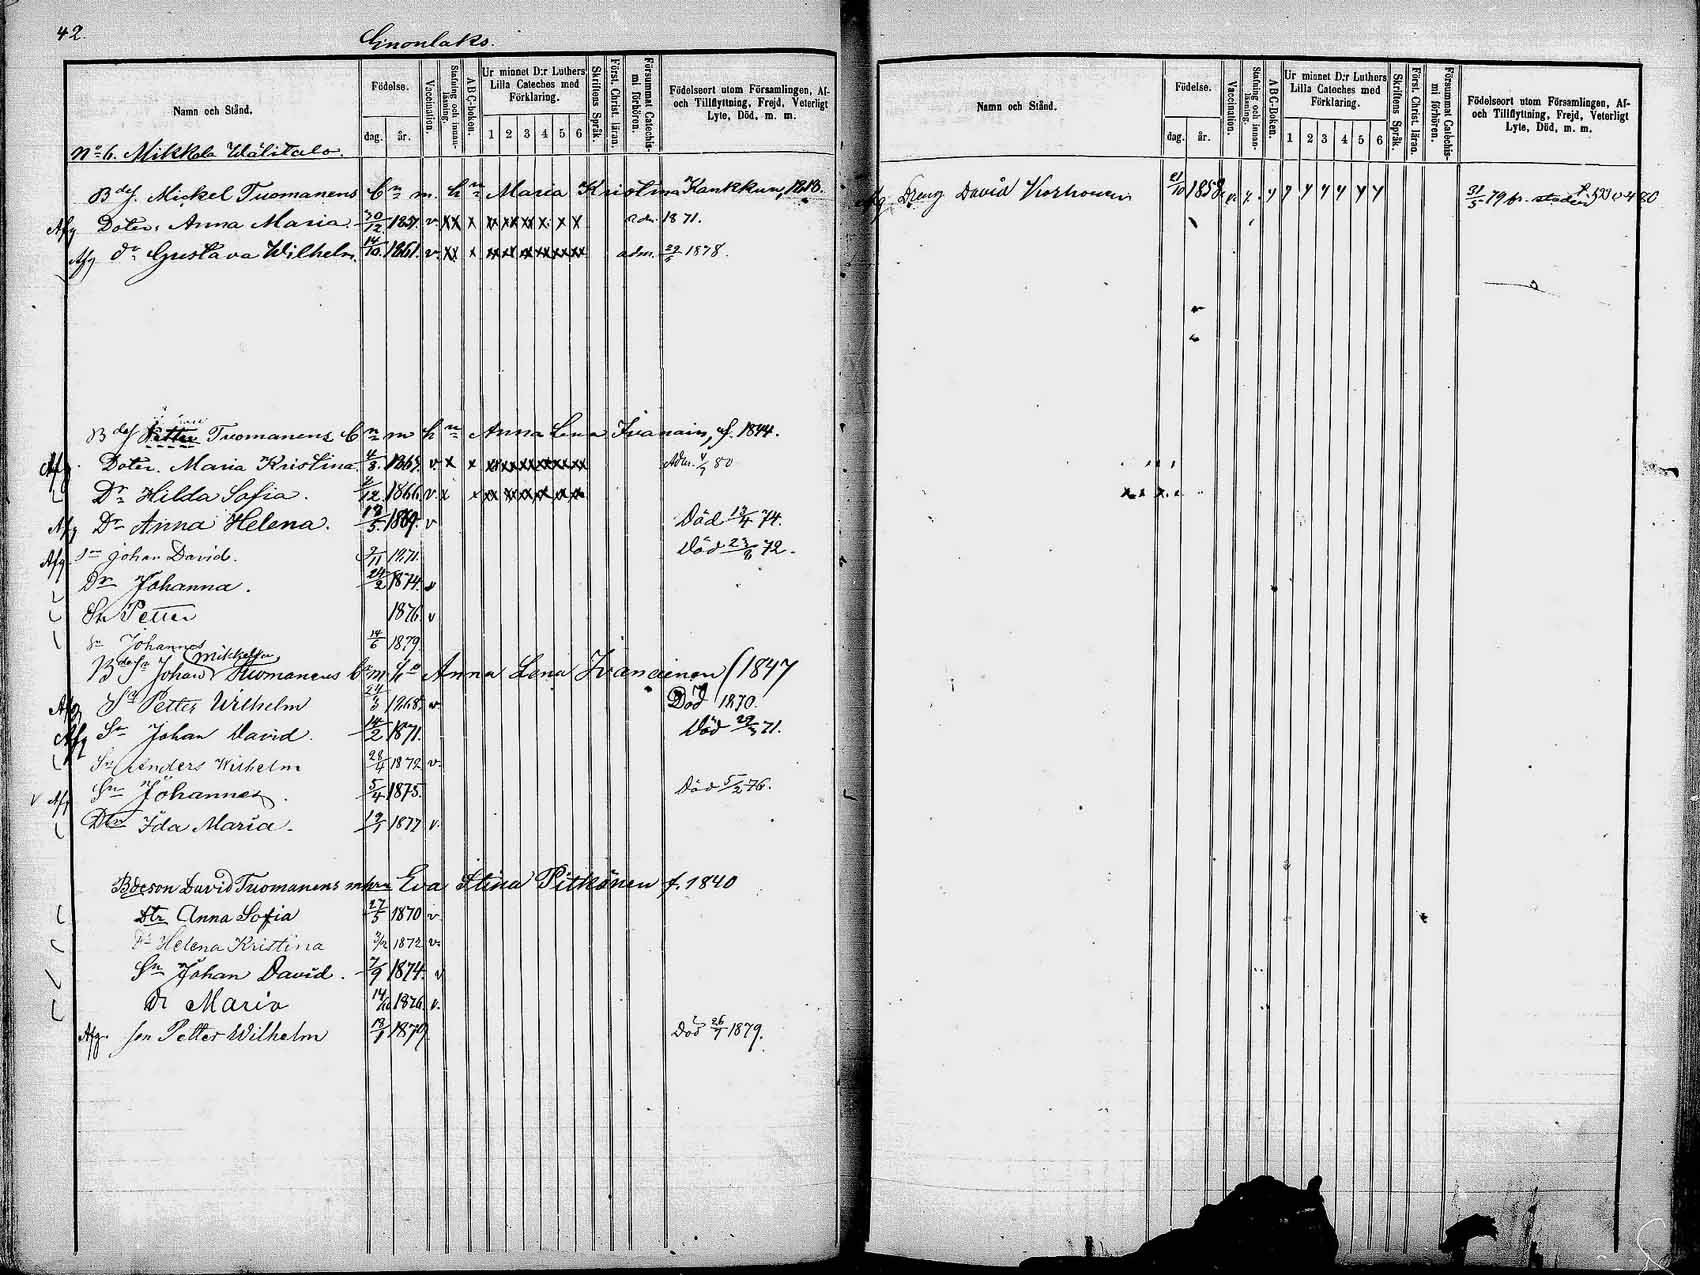 42.
Enonlaks.
Namn och Stånd.
Födelse.
dag. år.
Vaccination.
Stafning och innan-läsning.
A B C-boken.
Ur minnet D:r Luthers Lilla Cateches med Förklaring.
1 2 3 4 5 6
Skriftens Språk.
Först. Christ. läran.
Försummat Catechis-mi förhören.
Födelseort utom Församlingen, Af-
och Tillflyttning, Frejd, Veterligt
Lyte, Död, m. m.
No 6. Mikkola Wälitalo.
Bdes. Mickel Tuomanens bn m. hn Maria Kristina Kankkun, 1818.
Afg Doter. Anna Maria. 30/12 1857. v. adm. 1871.
Afg dr Gustava Wilhelm. 14/10 1861. v. adm. 1878.
Bdes Petter Tuomanens bn m hn Anna Lena Ivanain, f. 1844.
Afg. Doter. Maria Kristina. v x x Adm. 80
Dr Hilda Sofia. 2/12 1866 v. x
Afg Dr Anna Helena. 13/5 1869. v Död 13/4 74.
Afg Sn Johan David. 2/11 1871. Död 23/8 72.
Dr Johanna. 24/2 1874. v
Sn Petter 1876 v
Sn Johannes 14/6 1879.
Mikkelson
Bdes Sn Johan Tuomanens bn m hn Anna Lena Ivanainen f 1847
Afg Sn Petter Wilhelm 24/3 1868. v. Död 1870.
Afg Sn Johan David. 14/2 1871. Död 71.
Sn Anders Wilhelm 28/4 1872 v.
v Afg Sn Johannes. 5/4 1875. Död 5/2 76.
Dtr Ida Maria. 19/1 1877 v.
Bdeson David Tuomanens m hra Eva Stina Pitkänen f. 1840
Dtr Anna Sofia 27/5 1870 v
Helena Kristina 1872 v.
Sn Johan David. 7/9 1874. v
Dr Maria 1876. v.
Afg. son Petter Wilhelm 13/1 1879. Död 26/1 1879.
Namn och Stånd.
Födelse.
dag. år.
Vaccination.
Stafning och innan-läsning.
A B C-Boken.
Ur minnet D:r Luthers Lilla Cateches med Förklaring.
1 2 3 4 5 6
Skriftens Språk.
Först. Christ. läran.
Försummat Catechis-mi förhören.
Födelseort utom Församlingen, Af-
och Tillflyttning, Frejd, Veterligt
Lyte, Död, m. m.
Afg Dreng David Korhonen 21/10 1858 31/5 79 fr. staden